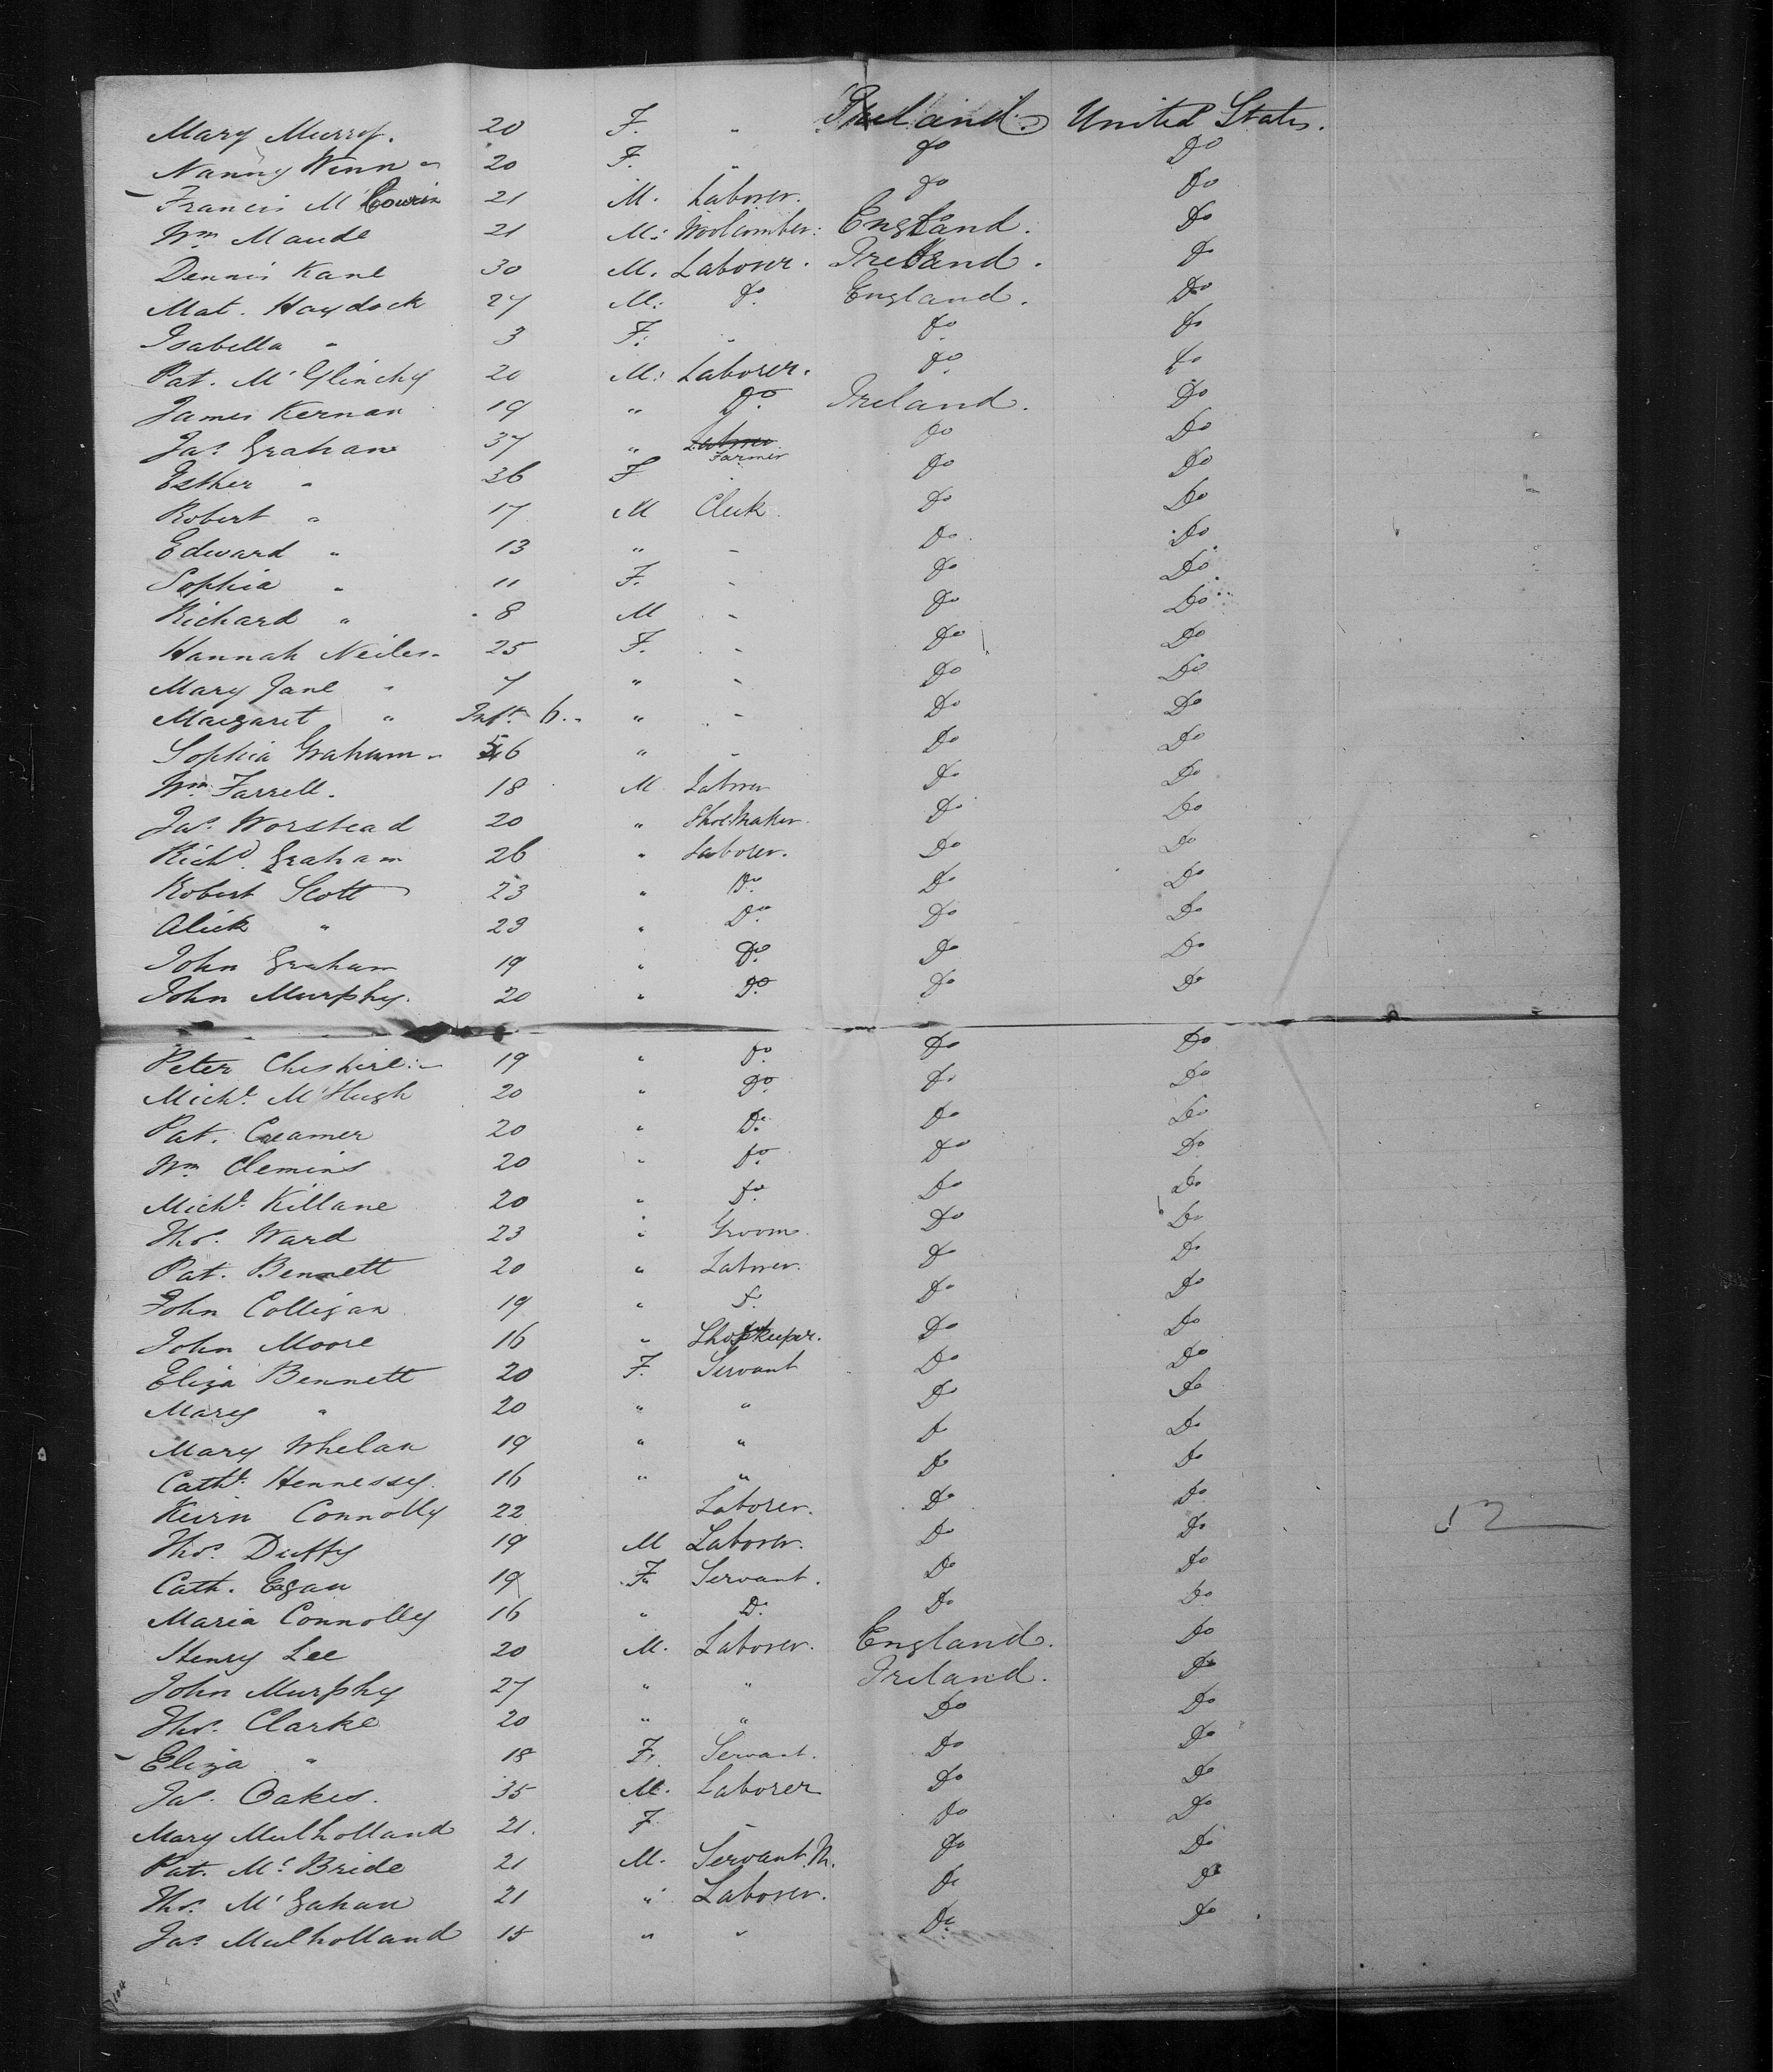 Mary Murry. 20 F. " Ireland. United States.
Nanny Winn 20 F. " Do Do
Francis McCowin 21 M. Laborer. Do Do
Wm Maude 21 M: Woolcomber: England. Do
Dennis Kane 30 M. Laborer. Ireland. Do
Mat. Haydock 27 M: Do. England. Do
Isabella " 3 F: " Do. Do
Pat. McGlinchy 20 M: Laborer. Do. Do
James Kernan 19 " Do. Ireland. Do
Jas Graham 37 " Farmer Do Do
Esther " 36 F Do Do
Robert " 17 M Clerk. Do Do
Edward " 13 " - Do. Do
Sophia " 11 F. - Do Do
Richard " 8 M - Do Do
Hannah Neiles 25 F. - Do Do
Mary Jane " 7 " - Do Do
Margaret " Inft. 6. " - Do Do
Sophia Graham 56 " - Do Do
Wm Farrell. 18 M Laborer Do Do
Jas Worstead 20 " ShoeMaker. Do Do
Richd Graham 26 " Laborer. Do Do
Robert Scott 23 " Do. Do Do
Alick " 23 " Do. Do Do
John Graham 19 " Do. Do Do
John Murphy. 20 " Do. Do Do
Peter Cheshire 19 " Do. Do Do
Michl. McHugh 20 " Do. Do Do
Pat. Creamer 20 " Do. Do Do
Wm Clemins 20 " Do. Do Do
Michl. Killane 20 " Do. Do Do
Thos. Ward 23 " Groom. Do Do
Pat. Bennett 20 " Laborer. Do Do
John Colligan 19 " Do. Do Do
John Moore 16 " Shopkeeper. Do Do
Eliza Bennett 20 F. Servant Do Do
Mary " 20 " " Do Do
Mary Whelan 19 " " Do Do
Cathe. Hennessy. 16 " " Do Do
Keirn Connolly 22 Laborer. Do Do
Thos. Duffy 19 M Laborer. Do Do
Cath. Egan 19 F. Servant. Do Do
Maria Connolly 16 " Do. Do Do
Henry Lee 20 M. Laborer. England. Do
John Murphy 27 " " Ireland. Do
Thos. Clarke 20 " " Do Do
Eliza " 18 F. Servant. Do Do
Jas. Oakes. 35 M. Laborer Do Do
Mary Mulholland 21. F. - Do Do
Pat. McBride 21 M. Servant. M. Do Do
Thos. McGahan 21 " Laborer. Do Do
Jas Mulholland 15 " " Do. Do
52